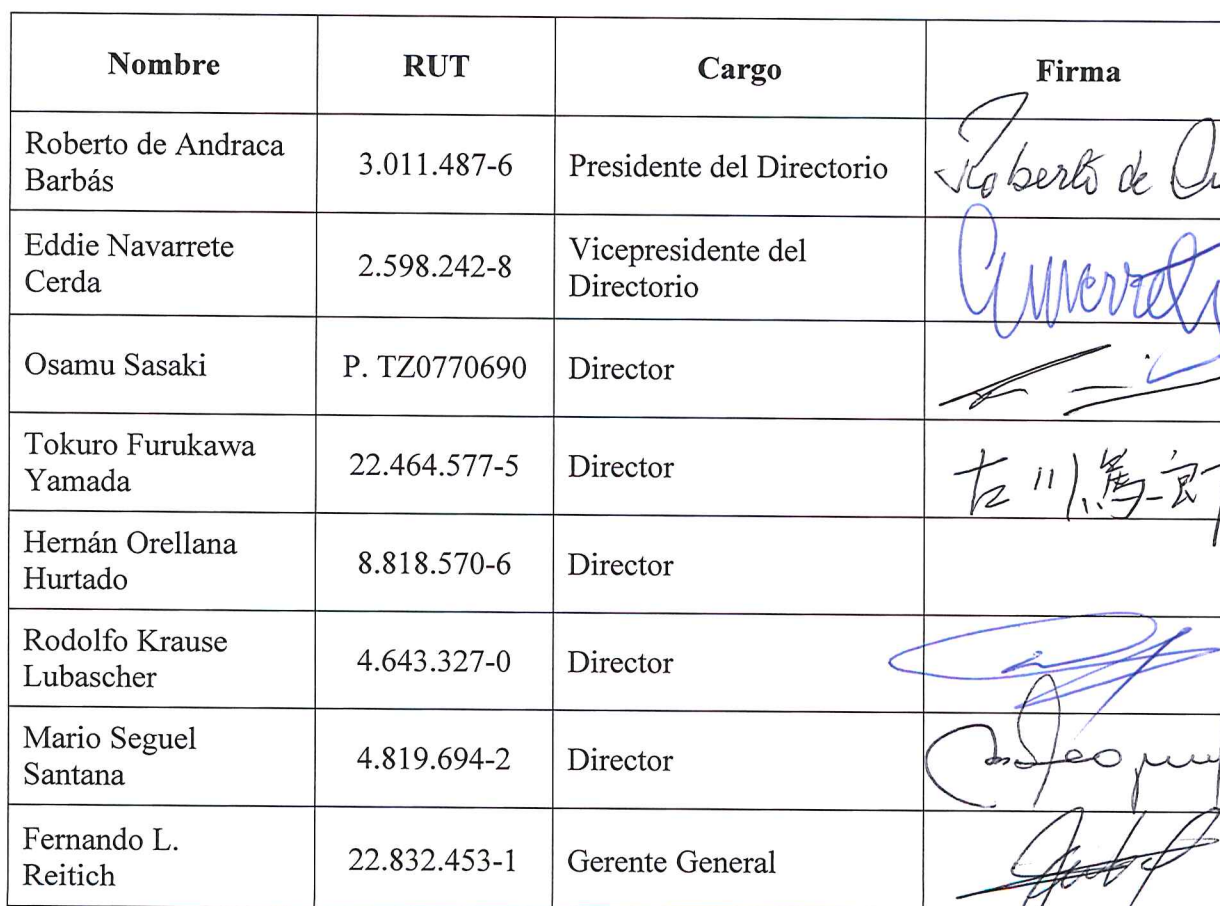 Nombre RUT Cargo Firma
Roberto de Andraca
Barbás
3.011.487-6
Presidente del Directorio
Roberto de
Eddie Navarrete
Cerda
2.598.242-8
Vicepresidente del
Directorio
Osamu Sasaki
P. TZ0770690
Director
Tokuro Furukawa
Yamada
22.464.577-5
Director
古川篤郎
Hernán Orellana
Hurtado
8.818.570-6
Director
Rodolfo Krause
Lubascher
4.643.327-0
Director
Mario Seguel
Santana
4.819.694-2
Director
Fernando L.
Reitich
22.832.453-1
Gerente General